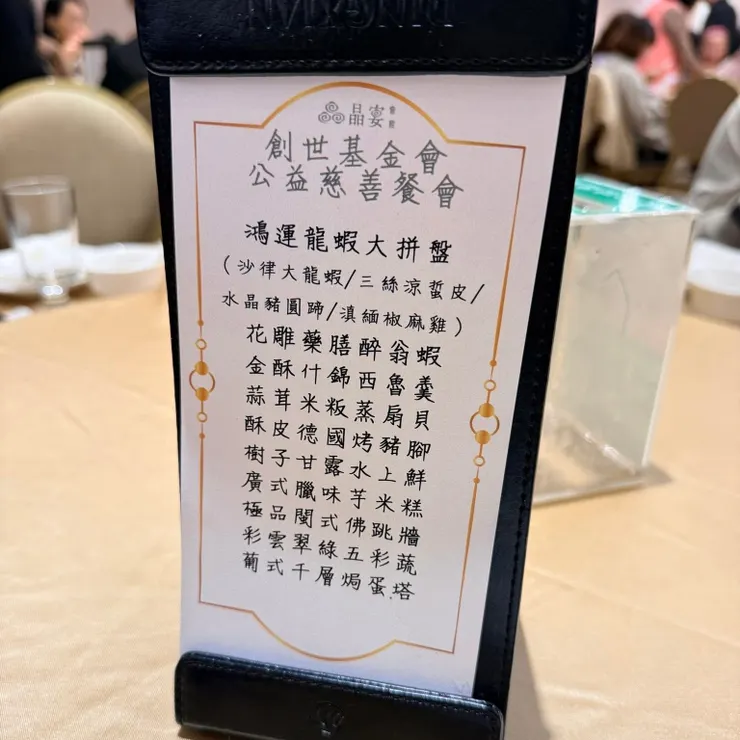 DINGXIAN
晶宴
會館
創世基金會
公益慈善餐會
鴻運龍蝦大拼盤
(沙律大龍蝦/三絲涼蜇皮/
水晶豬圓蹄/滇緬椒麻雞)
花雕藥膳醉翁蝦
金酥什錦西魯羹
蒜茸米粄蒸扇貝
酥皮德國烤豬腳
樹子甘露水上鮮
廣式臘味芋米糕
極品閩式佛跳牆
彩雲翠綠五彩蔬
葡式千層焗蛋塔